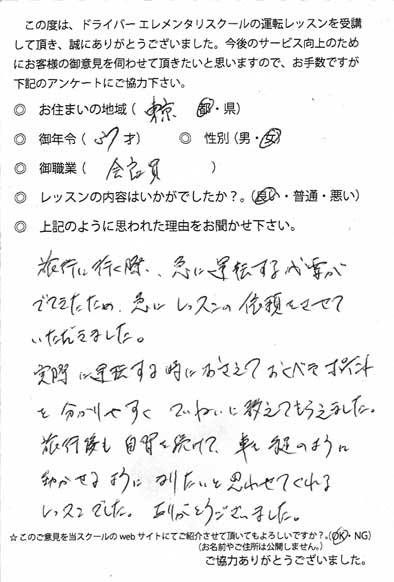 この度は、ドライバーエレメンタリスクールの運転レッスンを受講
して頂き、誠にありがとうございました。今後のサービス向上のため
にお客様の御意見を伺わせて頂きたいと思いますので、お手数ですが
下記のアンケートにご協力下さい。
◎ お住まいの地域( 東京 都・県)
◎ 御年令( 才) ◎ 性別(男・女)
◎ 御職業( 会社員 )
◎ レッスンの内容はいかがでしたか?。(良い・普通・悪い)
◎ 上記のように思われた理由をお聞かせ下さい。
旅行に行く際、急に運転する必要が
でてきたため、急にレッスンの依頼をさせて
いただきました。
実際に運転する時におさえておくべきポイント
を分かりやすくていねいに教えてもらえました。
旅行後も自習を続けて、車を足のように
動かせるようになりたいと思わせてくれる
レッスンでした。ありがとうございました。
☆このご意見を当スクールのwebサイトにてご紹介させて頂いてもよろしいですか?。(OK・NG)
(お名前やご住所は公開しません。)
ご協力ありがとうございました。